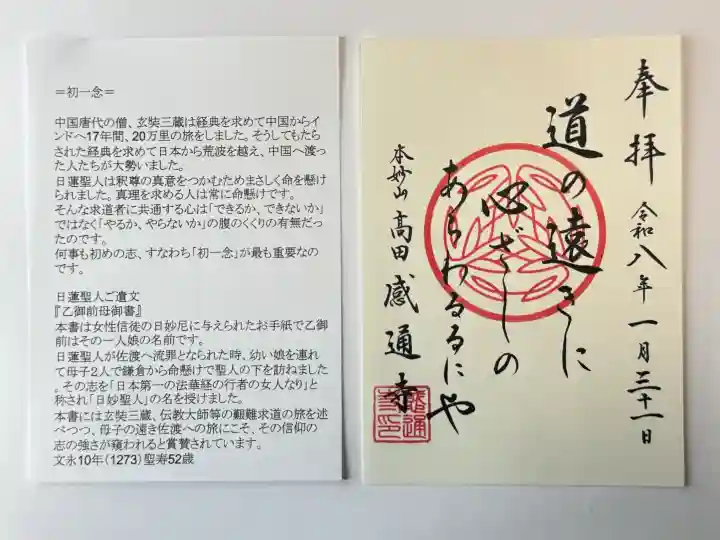 =初一念=
中国唐代の僧、玄奘三蔵は経典を求めて中国からイ
ンドへ17年間、20万里の旅をしました。そうしてもたら
された経典を求めて日本から荒波を越え、中国へ渡っ
た人たちが大勢いました。
日蓮聖人は釈尊の真意をつかむためまさしく命を懸け
られました。真理を求める人は常に命懸けです。
そんな求道者に共通する心は「できるか、できないか」
ではなく「やるか、やらないか」の腹のくくりの有無だっ
たのです。
何事も初めの志、すなわち「初一念」が最も重要なの
です。
日蓮聖人ご遺文
『乙御前母御書』
本書は女性信徒の日妙尼に与えられたお手紙で乙御
前はその一人娘の名前です。
日蓮聖人が佐渡へ流罪となられた時、幼い娘を連れ
て母子2人で鎌倉から命懸けで聖人の下を訪ねました
。その志を「日本第一の法華経の行者の女人なり」と
称され「日妙聖人」の名を授けました。
本書には玄奘三蔵、伝教大師等の艱難求道の旅を述
べつつ、母子の遠き佐渡への旅にこそ、その信仰の
志の強さが窺われると賞賛されています。
文永10年(1273)聖寿52歳
奉拝 令和八年一月三十一日
道の遠きに
心ざしの
あらわるるにや
本妙山 高田 感通寺
感通寺印